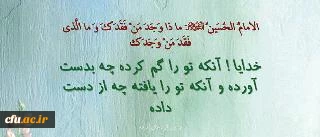 الامامُ الحُسَین ﷺ: ما ذا وَجَدَ مَنْ فَقَدَكَ وَ ما الَّذی
فَقَدَ مَنْ وَجَدَكَ
خدایا ! آنکه تو را گم کرده چه بدست
آورده و آنکه تو را یافته چه از دست
داده
cfu.ac.ir